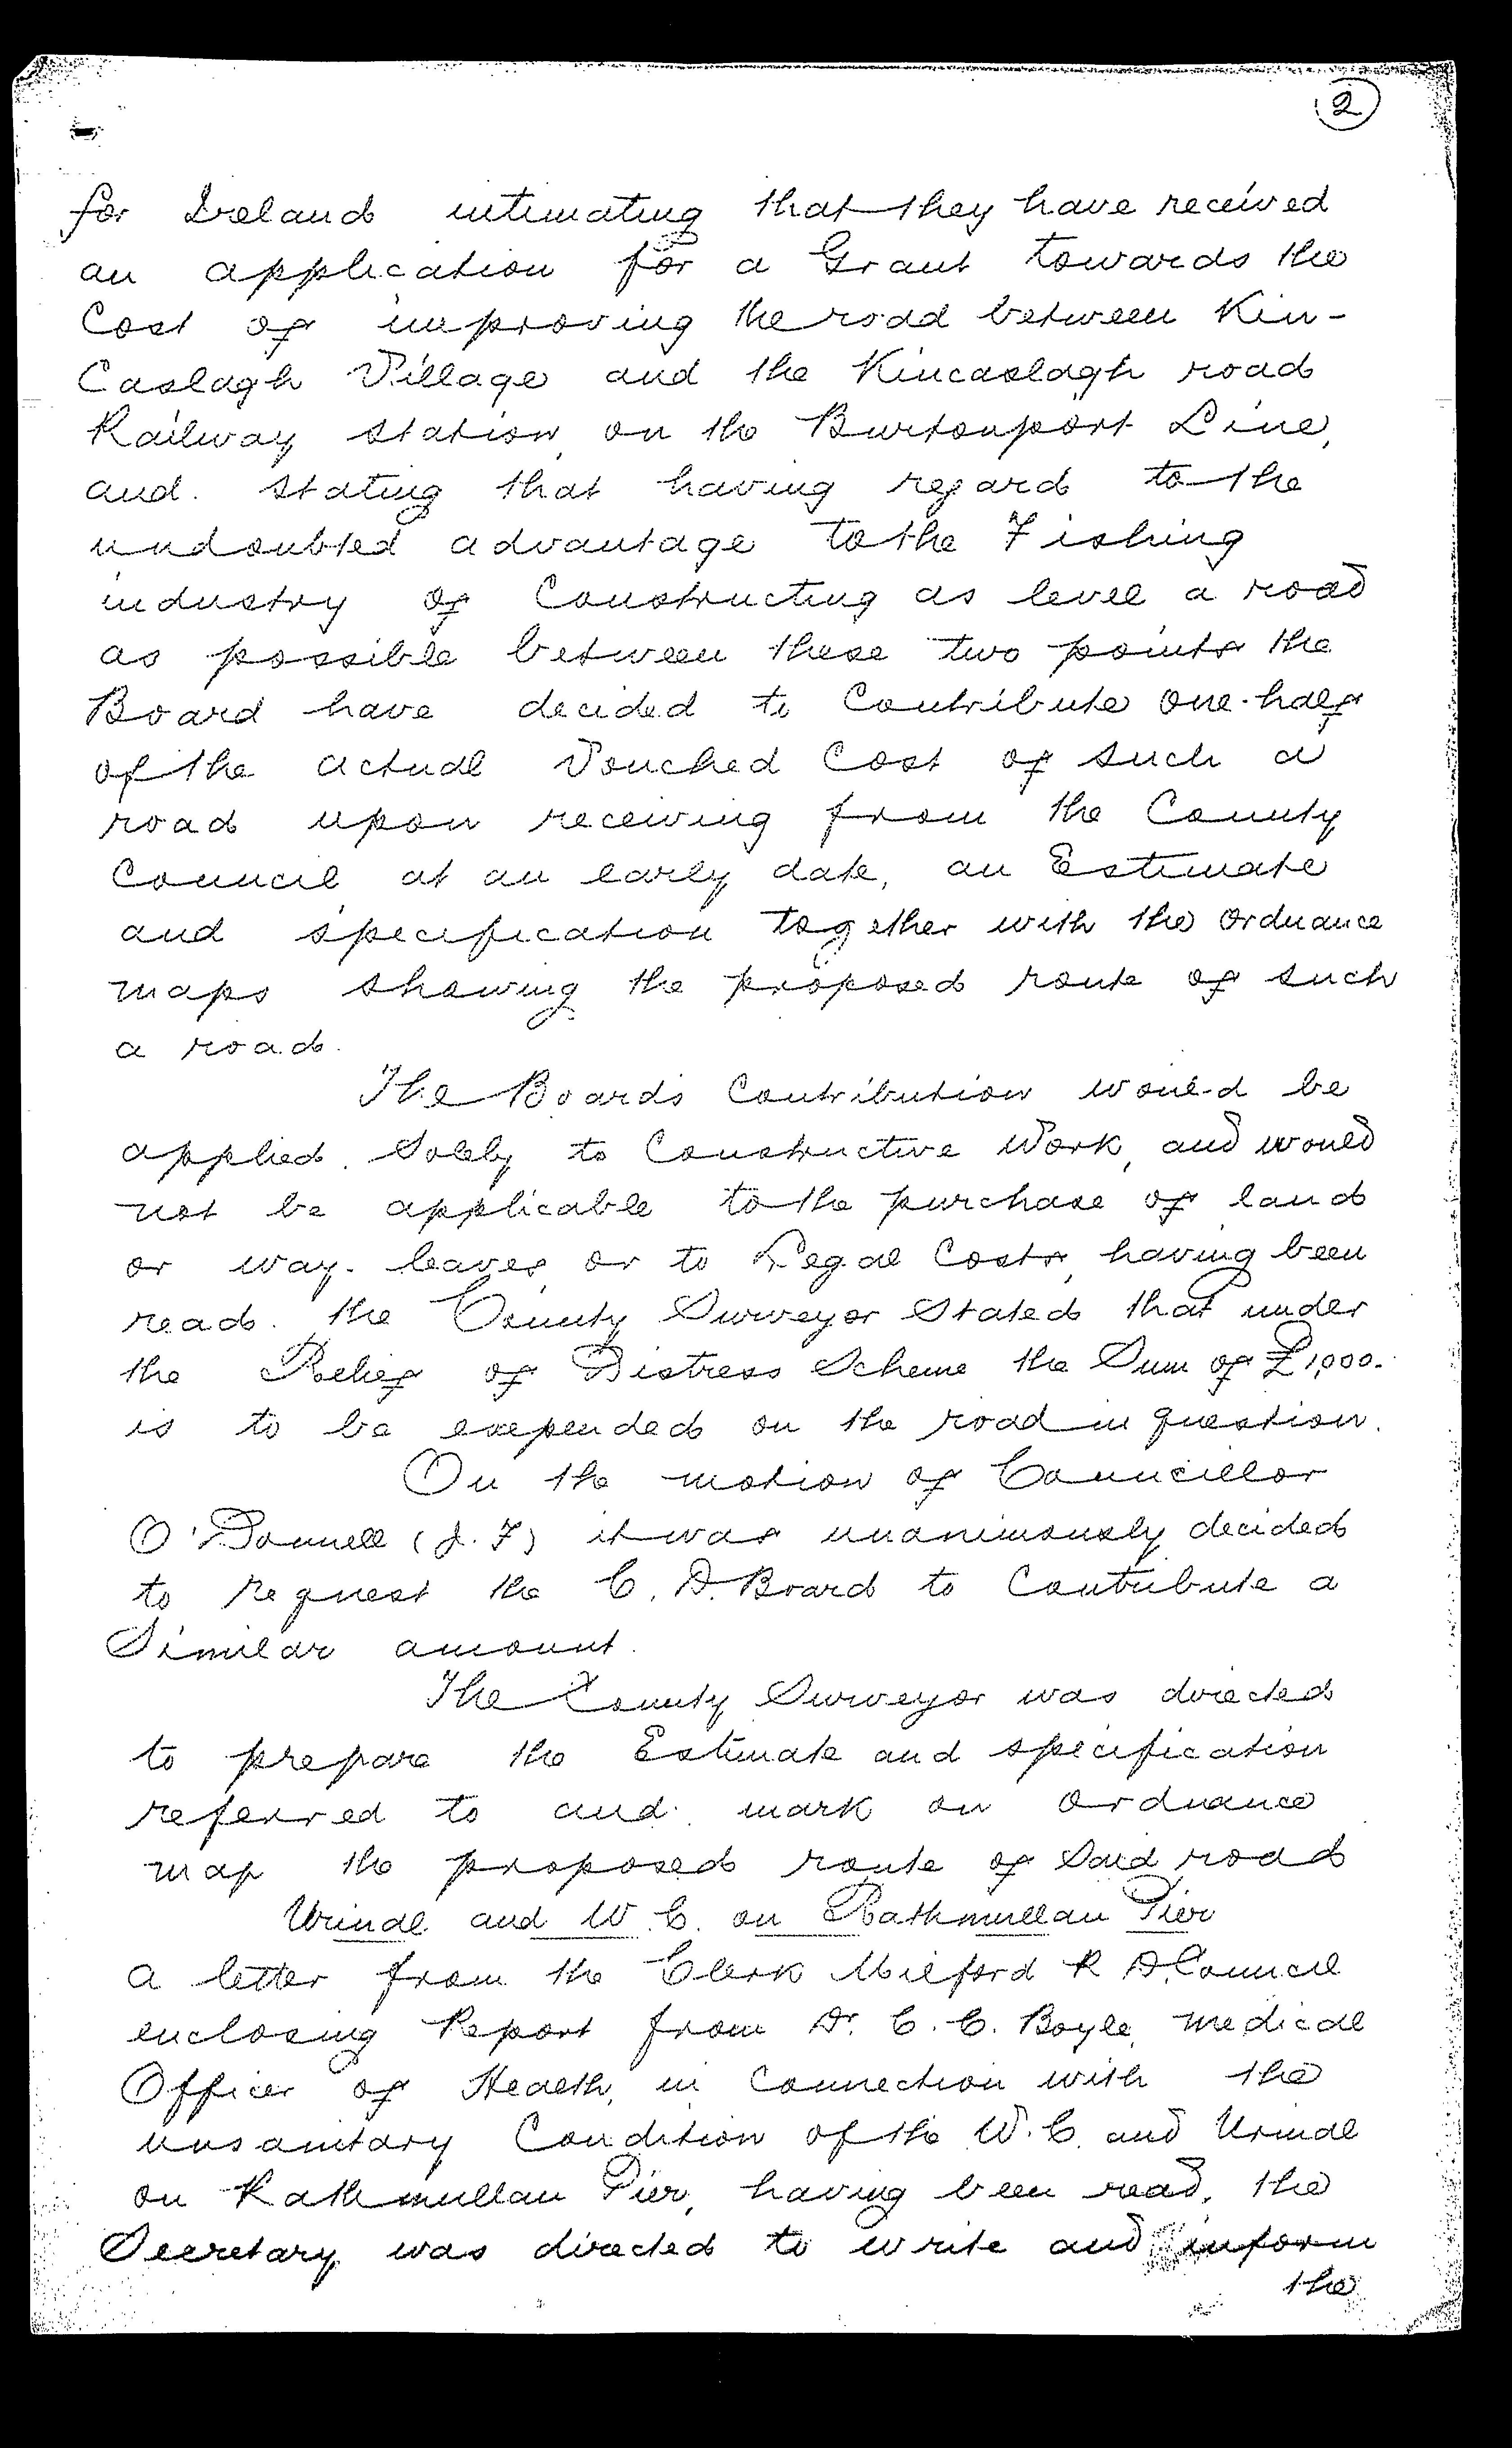 2
for Ireland intimating that they have received
an application for a Grant towards the
Cost of improving the road between Kin-
Caslagh Village and the Kincaslagh road
Railway station, on the Burtonport Line,
and stating that having regard to the
undoubted advantage to the Fishing
industry of Constructing as level a road
as possible between these two points the
Board have decided to Contribute one-half
of the actual Vouched Cost of such a
road upon receiving from the County
Council, at an early date, an Estimate
and specification together with the ordnance
maps showing the proposed route of such
a road.
The Board's Contribution would be
applied solely to Constructive Work, and would
not be applicable to the purchase of land
or way-leaves, or to Legal Costs, having been
read, the County Surveyor Stated that under
the Relief of Distress Scheme the Sum of £1,000.
is to be expended on the road in question.
On the motion of Councillor
O'Donnell (J. F) it was unanimously decided
to request the C. D. Board to Contribute a
Similar amount.
The County Surveyor was directed
to prepare the Estimate and specification
referred to and mark on ordnance
map the proposed route of said road
Urinal and W. C. on Rathmullan Pier
A letter from the Clerk Milford R D. Council
enclosing Report from Dr. C. C. Boyle, Medical
Officer of Health, in Connection with the
unsanitary Condition of the W. C. and Urinal
on Rathmullan Pier, having been read, the
Secretary was directed to write and inform
the